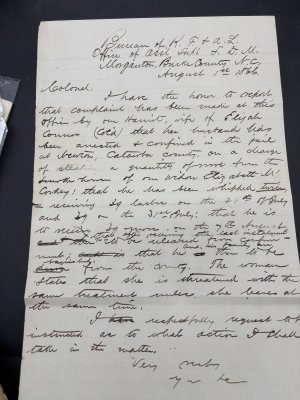 Bureau of R. F & A. L
Office of Asst. Supt. S. D. M.
Morganton, Burke County, N.C.
August 1st 1866.
Colonel.
I have the honor to report
that complaint has been made at this
office by one Harriet, wife of Elijah
Connor (Col'd) that her husband has
been arrested & confined in the jail
at Newton, Catawba County, on a charge
of stealing a quantity of wood from the
house of one Elizabeth Mc
Corkey: that he has been whipped twice,
receiving 39 lashes on the of July
and 39 on the 31st July: that he is
to receive 39 more, on the 7th August
after receiving the last
will be released from
that he then to be
from the county. The woman
states that she is threatened with the
same treatment unless she leaves at
the same time.
I respectfully request to be
instructed as to what action I shall
take in the matter.
Very